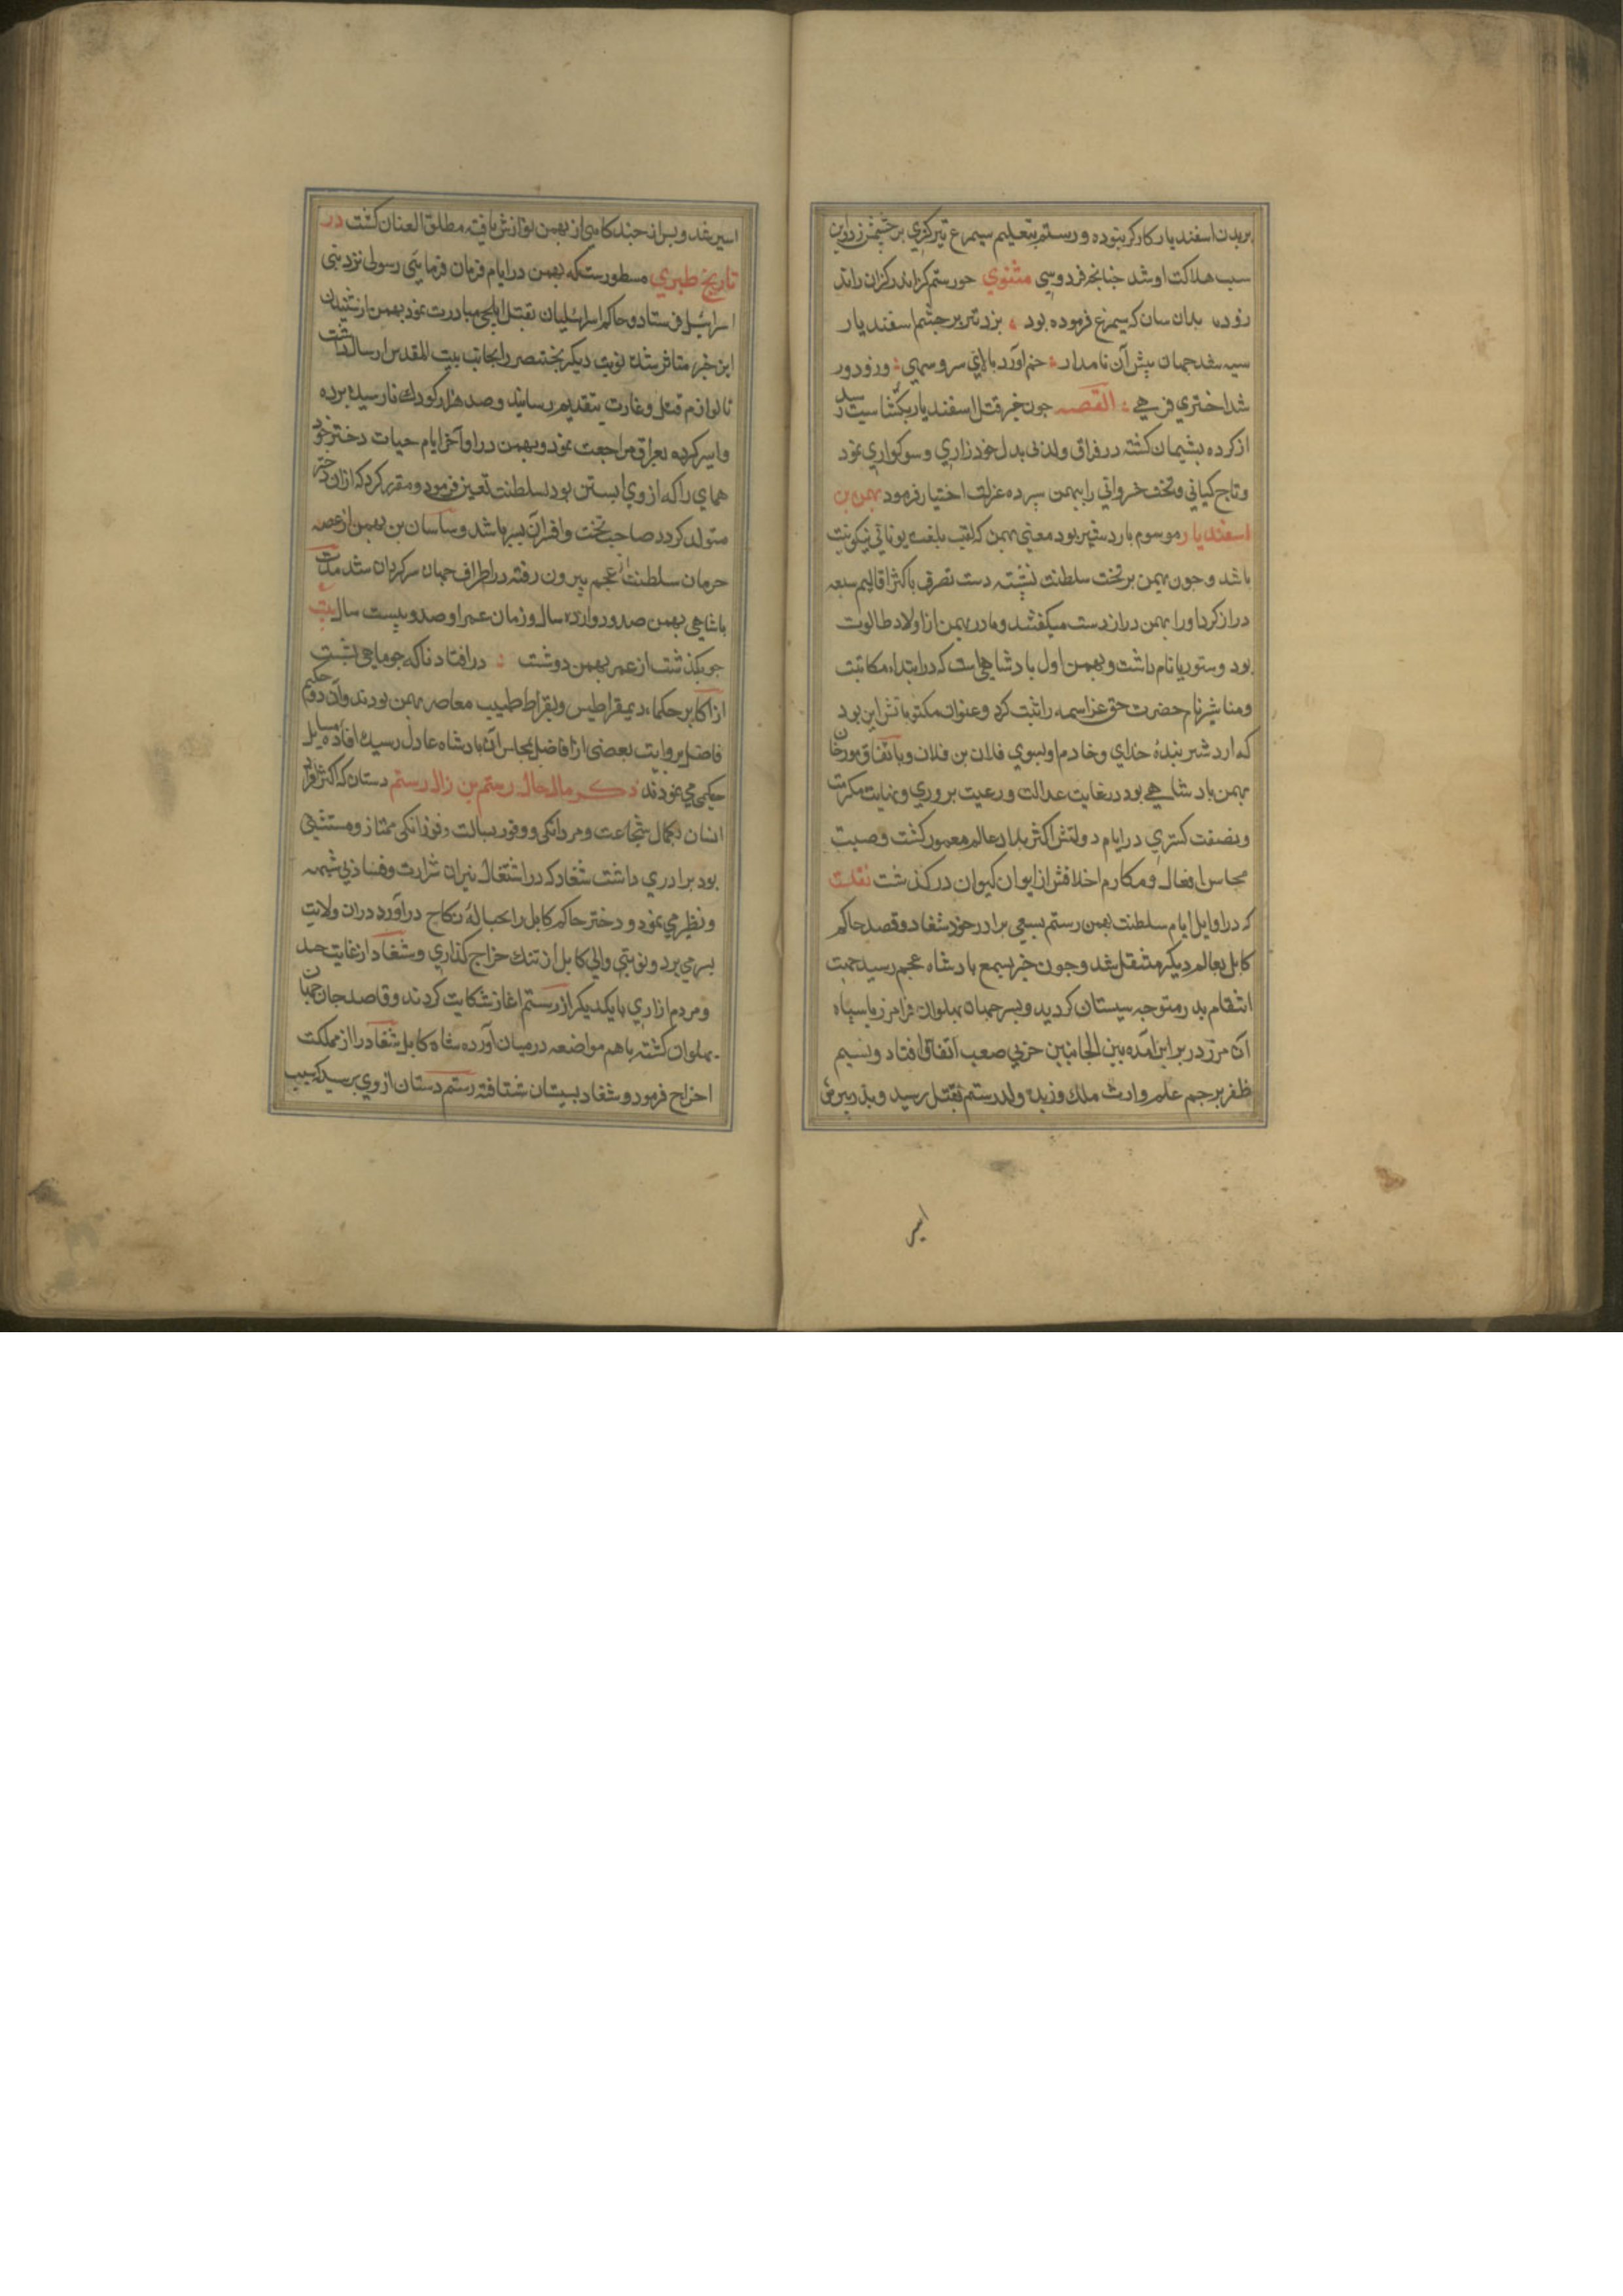 بر بدن اسفندیار کارکر نبوده و رستم بتعلیم سیمرغ تیر کزی بر چشمش زد و این
سبب هلاکت او شد جنانجه فردوسی مثنوی جو رستم کز اندر کزان راند
زود بدان سان که سیمرغ فرموده بود بزد تیر بر جشم اسفندیار
سیه شد جهان پیش آن نامدار خم آورد بالای سرو سهی ورو دور
شد اختری فرهی القصه جون خبر قتل اسفندیار بکشتاسب رسید
از کرده بشیمان کشته در فراق ولد بی بدل خود زاری و سوکواری نمود
و تاج کیانی و تخت خسروانی را ببهمن سپرده عزلت اختیار فرمود بهمن بن
اسفندیار موسوم باردشیر بود معنی بهمن که لقب بلغت یونانی نیکونیت
باشد و جون بهمن بر تخت سلطنت نشسته دست تصرف باکثر اقالیم سبعه
دراز کرد او را بهمن دراز دست میکفتند و مادر بهمن از اولاد طالوت
بود و ستوریا نام داشت و بهمن اول بادشاهی است که در ابتداء مکاتبت
و مناشیر نام حضرت حق عز اسمه را ثبت کرد و عنوان مکتوباتش این بود
که اردشیر بندهٔ خدای و خادم او بسوی فلان بن فلان و باتفاق مورخان
بهمن بادشاهی بود در غایت عدالت و رعیت بروری و نهایت مکرمت
و نصفت کستری در ایام دولتش اکثر بلاد عالم معمور کشت و صیت
محاسن افعال و مکارم اخلاقش از ایوان کیوان در کذشت نقلست
که در اوایل ایام سلطنت بهمن رستم بسعی برادر خود شغاد و قصد حاکم
کابل بعالم دیکر منتقل شد و جون خبر بسمع بادشاه عجم رسید جهت
انتقام بدر متوجه سیستان کردید و بسر جهان بهلوان فرامرز با سپاه
آن مرز در برابر آمده بین الجانبین حربی صعب اتفاق افتاد و نسیم
ظفر بر جم علم وارث ملک وزیده ولد رستم بقتل رسید و بدر بیرش
اسیر
اسیر شد و بس از جندکاهی از بهمن نوازش یافته مطلق العنان کشت در
تاریخ طبری مسطورست که بهمن در ایام فرمان فرمایی رسولی نزد بنی
اسرائیل فرستاد و حاکم اسرائیلیان بقتل ایلجی مبادرت نمود بهمن از شنیدن
این خبر متاثر شده نوبت دیکر بختنصر را بجانب بیت المقدس ارسال داشت
تا لوازم قتل و غارت بتقدیم رسانید و صد هزار کودک نارسیده برده
و اسیر کرده بعراق مراجعت نمود و بهمن در اواخر ایام حیات دختر خود
همای را که از وی ابستن بود بسلطنت تعیین فرمود و مقرر کرد که از او هر جه
متولد کردد صاحب تخت و افسر آن بسر باشد و ساسان بن بهمن از غصه
حرمان سلطنت از عجم بیرون رفته در اطراف جهان سرکردان شد مدت
باشاهی بهمن صد و دوازده سال و زمان عمر او صد و بیست سال بیت
جو بکذشت از عمر بهمن دوشت در افتاد ناکه جو ماهی بشست
از اکابر حکماء دیمقراطیس و بقراط طبیب معاصر بهمن بودند و آن دو حکیم
فاضل بروایت بعضی از افاضل بمجلس آن بادشاه عادل رسیده افاده مسایل
حکمی می نمودند ذکر مال حال رستم بن زال رستم دستان که اکثر افراد
انسان بکمال شجاعت و مردانکی و وفور بسالت و فرزانکی ممتاز و مستثنی
بود برادری داشت شغاد که در اشتعال نیران شرارت و فساد بی شبه
و نظیر می نمود و دختر حاکم کابل را بحبالهٔ نکاح درآورد در ان ولایت
بسر می برد و نوبتی والی کابل از تنک خراج کذاری و شغاد از غایت حسد
و مردم ازاری با یکدیکر از رستم اغاز شکایت کردند و قاصد جان جهان
بهلوان کشته باهم مواضعه در میان آورده شاه کابل شغاد را از مملکت
اخراج فرمود و شغاد بسیستان شتافته رستم دستان از وی برسید که سبب